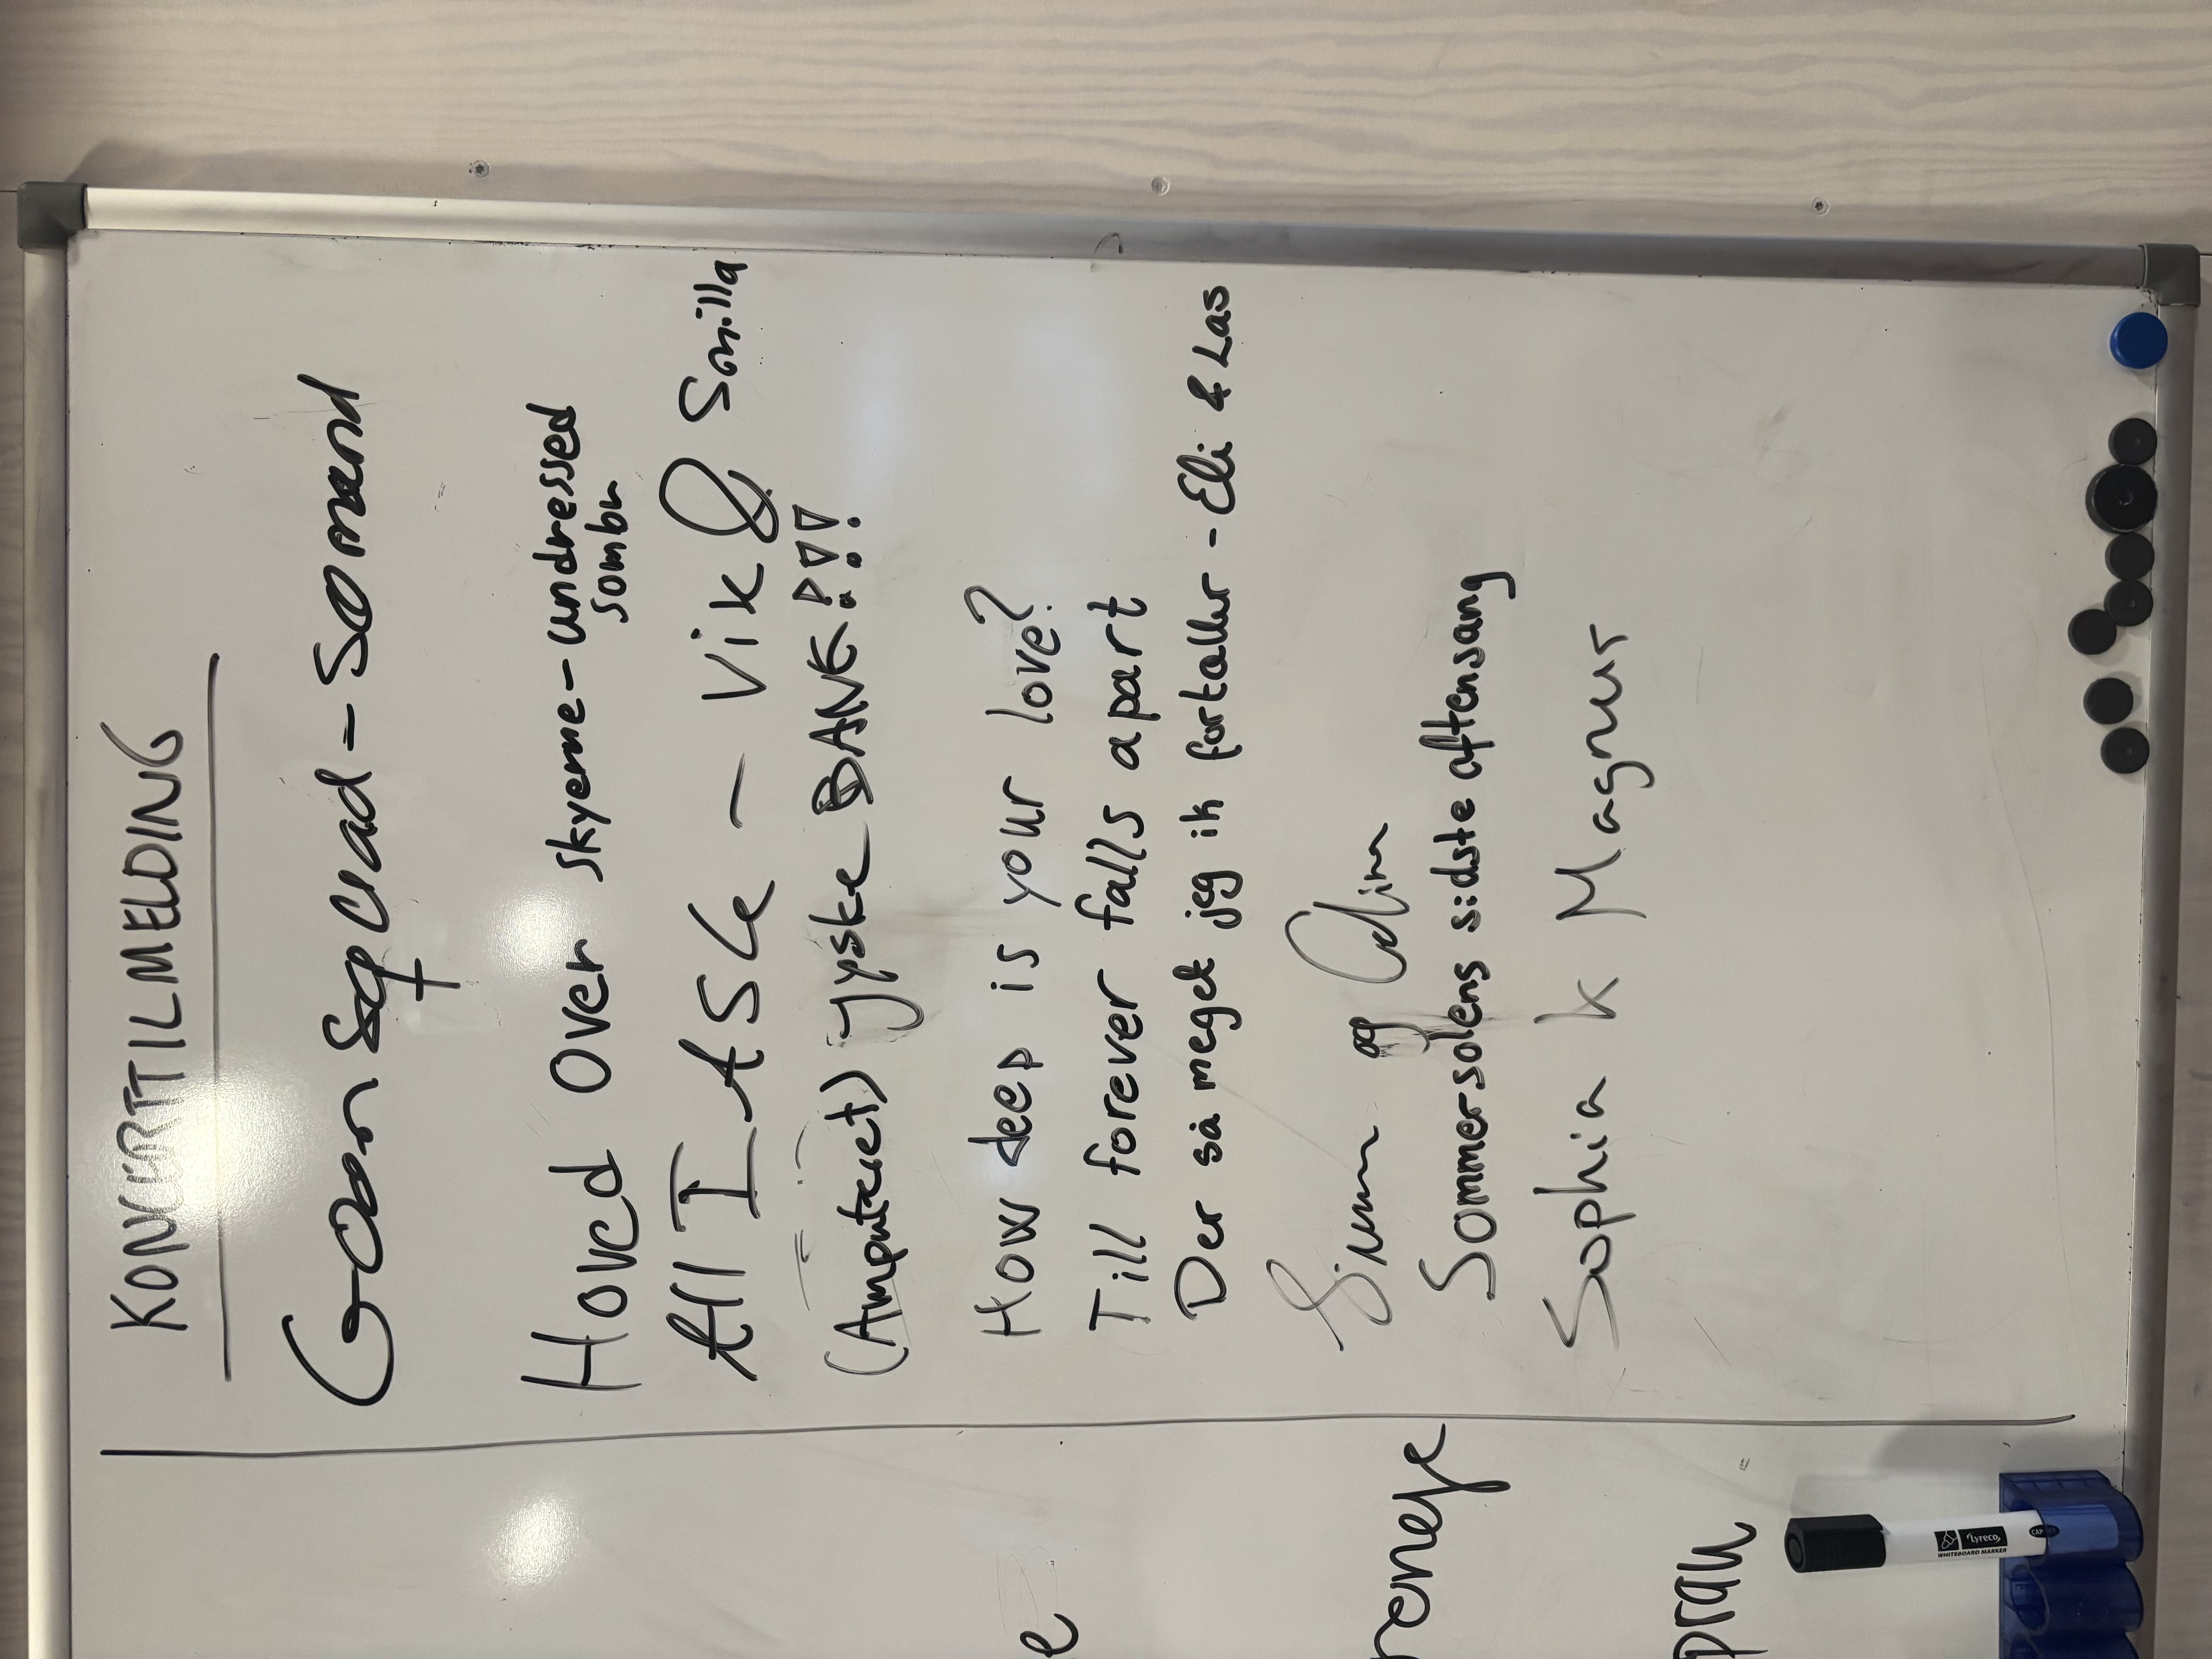 KONCERTTILMELDING
Goon Sqcuad - Sømand
Hoved Over skyerne - undressed
sombr
All I ASK - Vik & Smilla
(Amputeret) jyske BANK?!!
How deep is your love?
Till forever falls apart
Der så meget jeg ik fortæller - Eli & Las
og
Sommersolens sidste aftensang
Sophia k Magnus
e
pran
Lyreco
WHITEBOARD MARKER